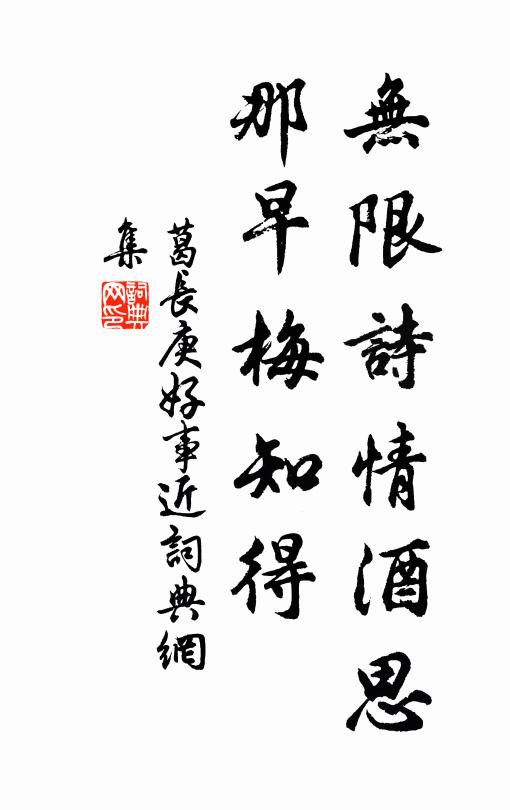 無限詩情酒思
那早梅知得
葛長庚好事近詞典網
集
詞典
网印